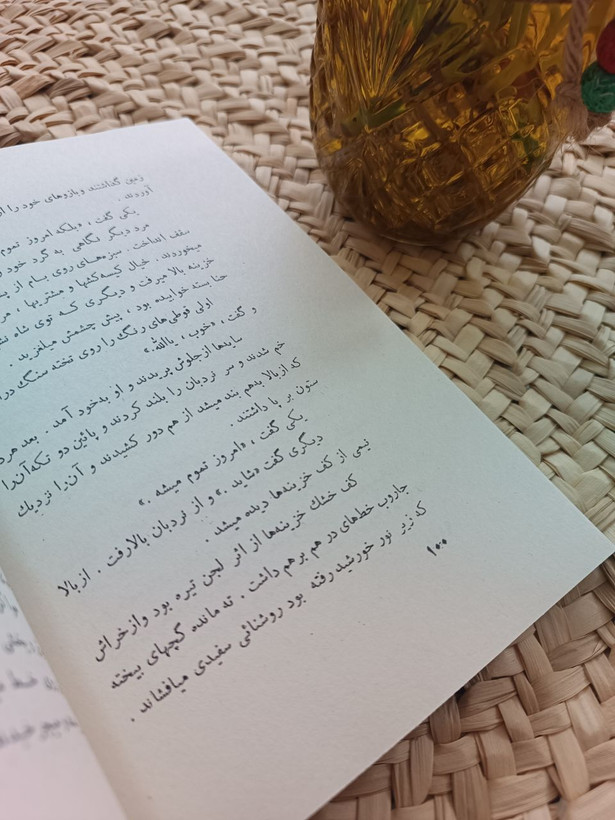 زمین گذاشتند و بازوهای خود را از
آوردند .
یکی گفت ، «بلکه امروز تموم
مرد دیگر نگاهی به گرد خود
سقف انداخت . سبزه‌های روی بام از
میخوردند . خیال کیسه‌کشها و مشتریها ،
خزینه بالا میرفت و دیگری که توی شاه
حنا بسته خوابیده بود ، پیش چشمش میلغزید .
اولی قوطی‌های رنگ را روی تخته سنگ
و گفت ، «خوب ، یاالله»
سایه‌ها از جلوش پریدند و او به‌خود آمد . بعد هردو
خم شدند و سر نردبان را بلند کردند و پائین دو تکه‌آنرا
که از بالا بدهم بند میشد از هم دور کشیدند و آن‌را نزدیك
ستون بر پا داشتند .
یکی گفت ، «امروز تموم میشه .»
دیگری گفت «شاید .» و از نردبان بالا رفت . از بالا
نیمی از کف خزینه‌ها دیده میشد .
کف خشك خزینه‌ها از اثر لجن تیره بود و از خراش
جاروب خط‌های در هم برهم داشت . ته مانده گچهای بیخته
که زیر نور خورشید رفته بود روشنائی سفیدی میافشاند .
۱۰۰